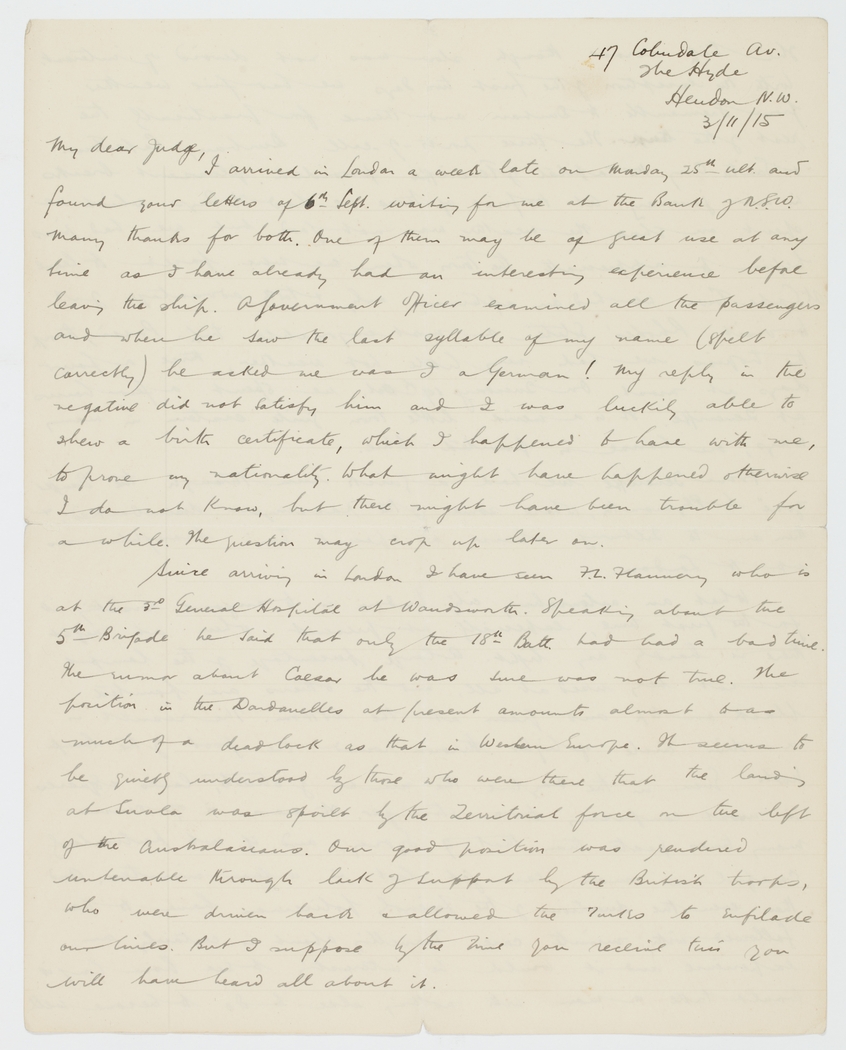 47 Colindale Av.
The Hyde
Hendon N.W.
3/11/15
My dear Judge,
I arrived in London a week late on Monday 25th ult. and
found your letters of 6th Sept. waiting for me at the Bank of N.S.W.
Many thanks for both. One of them may be of great use at any
time as I have already had an interesting experience before
leaving the ship. A Government Officer examined all the passengers
and when he saw the last syllable of my name (spelt
correctly) he asked me was I a German! My reply in the
negative did not satisfy him and I was luckily able to
shew a birth certificate, which I happened to have with me,
to prove my nationality. What might have happened otherwise
I do not know, but there might have been trouble for
a while. The question may crop up later on.
Since arriving in London I have seen F.L. Flannery who is
at the 3rd General Hospital at Wandsworth. Speaking about the
5th Brigade he said that only the 18th Batt. had had a bad time.
The rumor about Caesar he was sure was not true. The
position in the Dardanelles at present amounts almost to as
much of a deadlock as that in Western Europe. It seems to
be quietly understood by those who were there that the landing
at Suvla was spoilt by the Territorial force on the left
of the Australasians. Our good position was rendered
untenable through lack of support by the British troops,
who were driven back & allowed the Turks to enfilade
our lines. But I suppose by the time you receive this you
will have heard all about it.